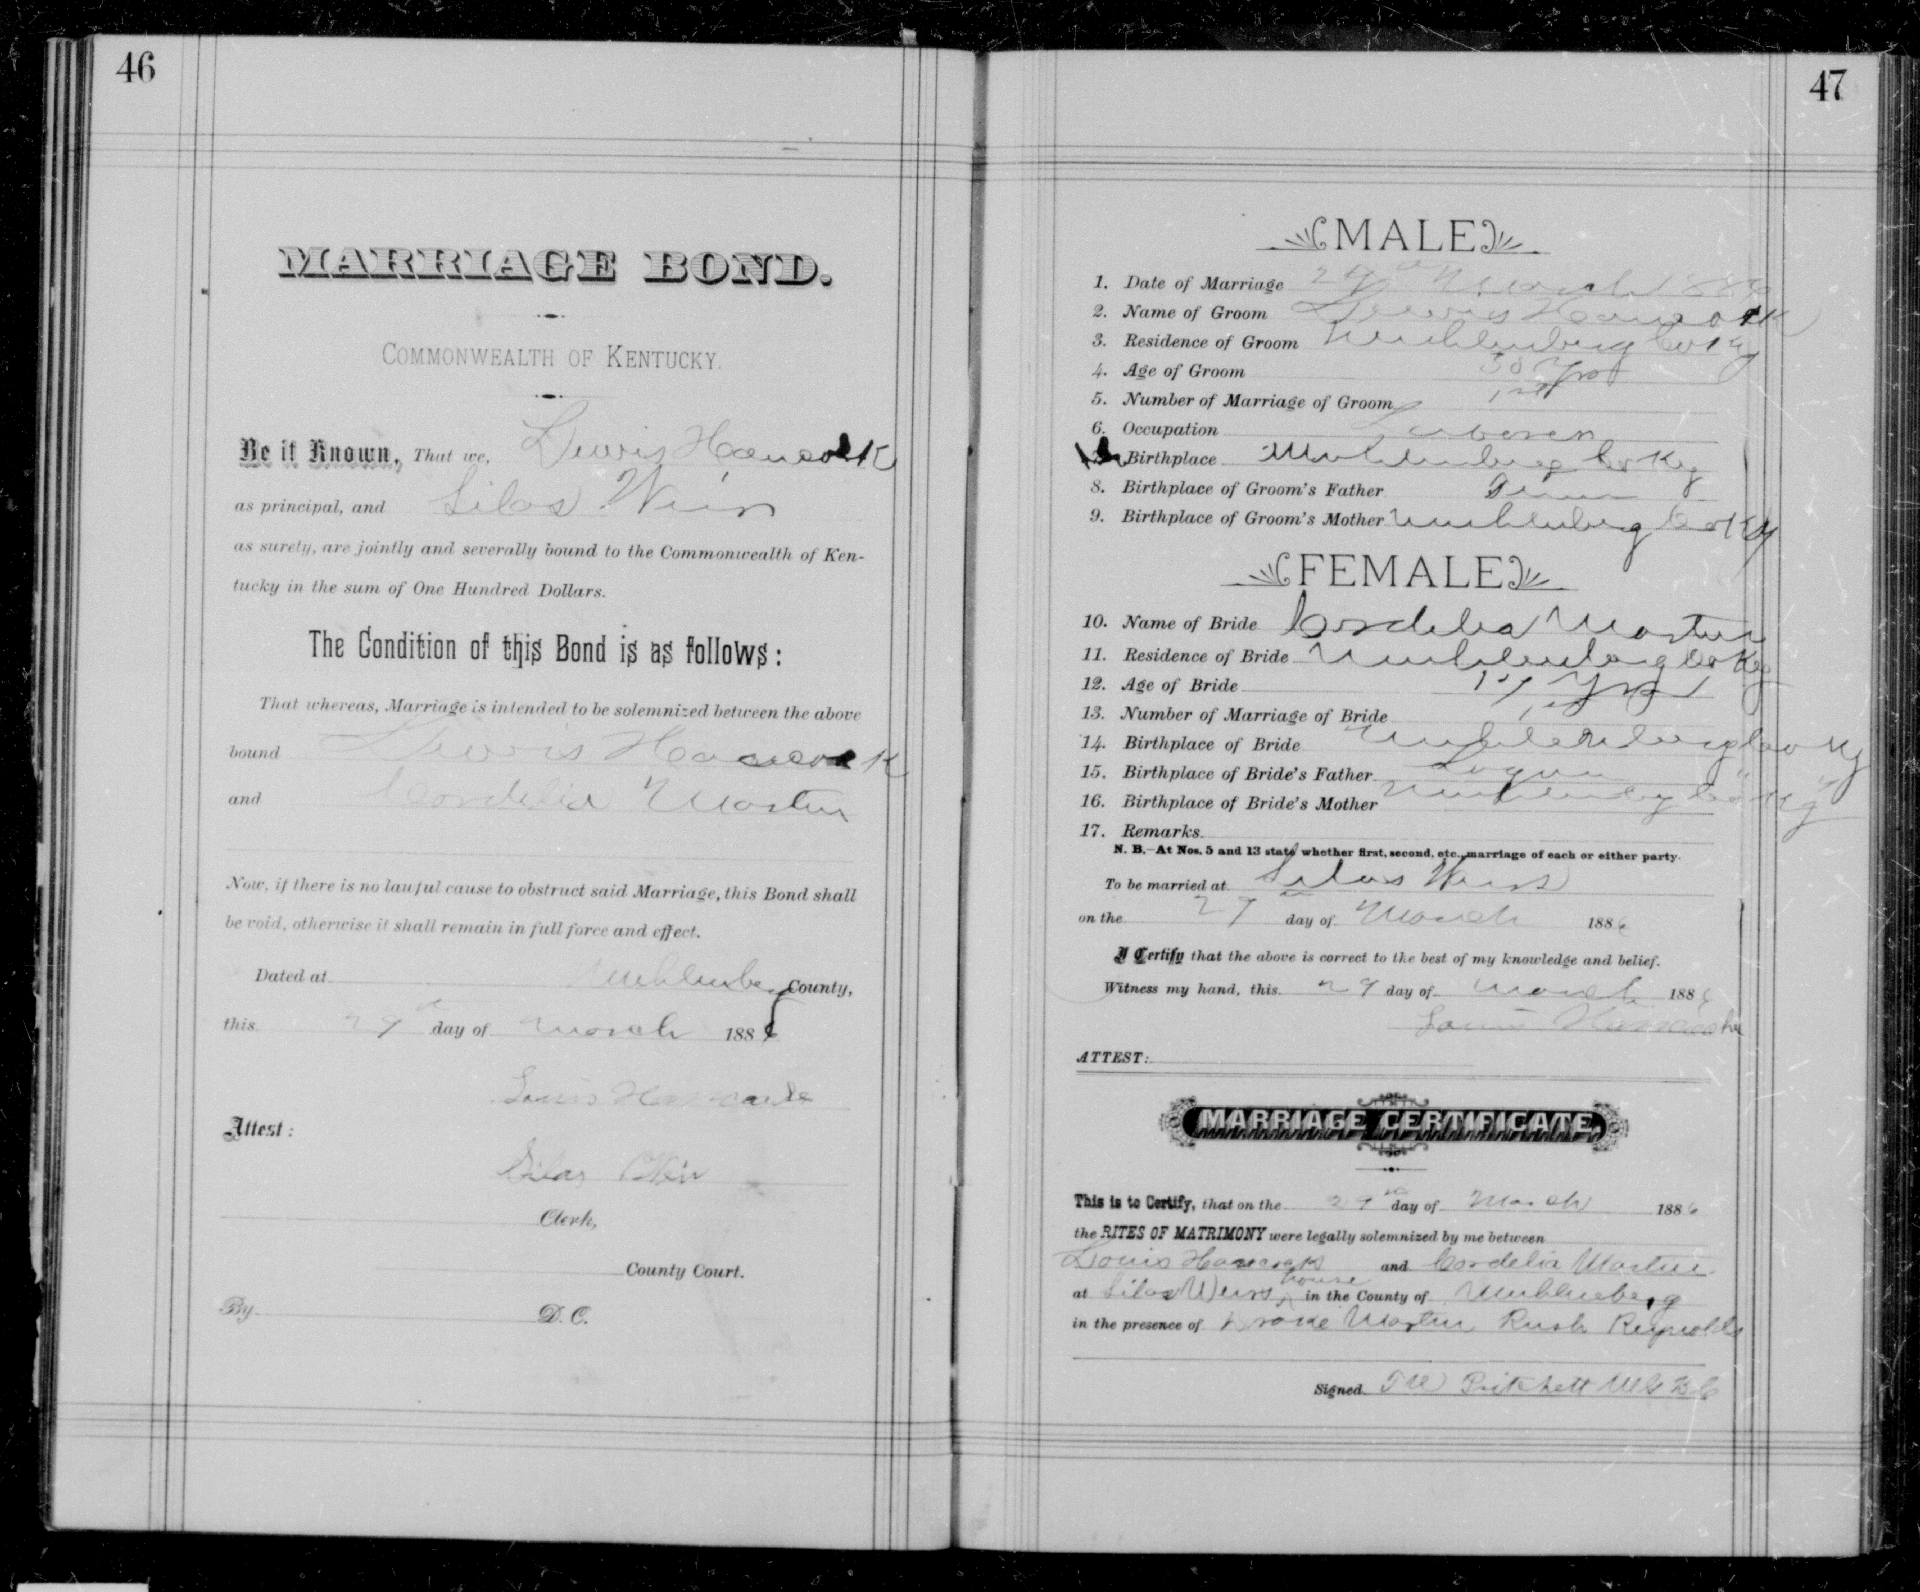 46
MARRIAGE BOND.
COMMONWEALTH OF KENTUCKY.
Be it Known, That we, Lewis Hancock
as principal, and Silas Weir
as surety, are jointly and severally bound to the Commonwealth of Ken-
tucky in the sum of One Hundred Dollars.
The Condition of this Bond is as follows:
That whereas, Marriage is intended to be solemnized between the above
bound Lewis Hancock
and Cordelia Martin
Now, if there is no lawful cause to obstruct said Marriage, this Bond shall
be void, otherwise it shall remain in full force and effect.
Dated at Muhlenberg County,
this 29th day of March 1886
Louis Hancock
Attest:
Silas Weir
Clerk,
County Court.
By D. C.
47
MALE
1. Date of Marriage 29th March 1886
2. Name of Groom Lewis Hancock
3. Residence of Groom Muhlenberg Co Ky
4. Age of Groom yrs
5. Number of Marriage of Groom 1st
6. Occupation Laborer
7. Birthplace Muhlenberg Co Ky
8. Birthplace of Groom's Father Tenn
9. Birthplace of Groom's Mother Muhlenberg Co Ky
FEMALE
10. Name of Bride Cordelia Martin
11. Residence of Bride Muhlenberg Co Ky
12. Age of Bride Yrs
13. Number of Marriage of Bride 1st
14. Birthplace of Bride Muhlenberg Co Ky
15. Birthplace of Bride's Father Logan " "
16. Birthplace of Bride's Mother Muhlenberg Co Ky
17. Remarks
N. B.—At Nos. 5 and 13 state whether first, second, etc., marriage of each or either party.
To be married at Silas Weirs
on the 29th day of March 1886
I Certify that the above is correct to the best of my knowledge and belief.
Witness my hand, this 29 day of March 1886
Louis Hancock
ATTEST:
MARRIAGE CERTIFICATE.
This is to Certify, that on the 29th day of March 1886
the RITES OF MATRIMONY were legally solemnized by me between
Louis Hancock and Cordelia Martin
at Silas Weirs house in the County of Muhlneberg
in the presence of Martin Rush Reynolds
Signed. Pritchett